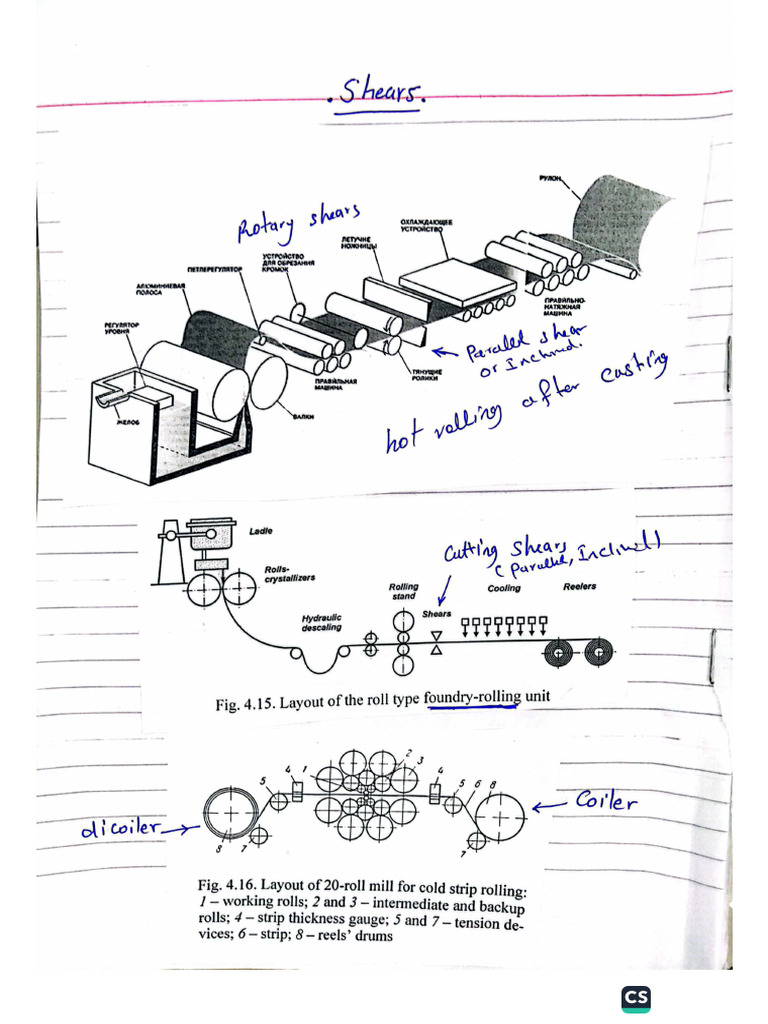 . Shears.
РУЛОН
Rotary shears
ОХЛАЖДАЮЩЕЕ
УСТРОЙСТВО
ЛЕТУЧИЕ
НОЖНИЦЫ
УСТРОЙСТВО
ДЛЯ ОБРЕЗАНИЯ
КРОМОК
ПЕТЛЕРЕГУЛЯТОР
АЛЮМИНИЕВАЯ
ПОЛОСА
РЕГУЛЯТОР
УРОВНЯ
ПРАВИЛЬНО-
НАТЯЖНАЯ
МАШИНА
Parallel shear
or Inclined.
ТЯНУЩИЕ
РОЛИКИ
ПРАВИЛЬНАЯ
МАШИНА
ВАЛКИ
ЖЕЛОБ
hot rolling after casting
Ladle
Cutting Shears
(Parallel, Inclined)
Rolls-
crystallizers
Rolling
stand
Cooling
Reelers
Shears
Hydraulic
descaling
Fig. 4.15. Layout of the roll type foundry-rolling unit
1 2 3
5 4 4 5 6 8
Coiler
dicoiler
8 7 7
Fig. 4.16. Layout of 20-roll mill for cold strip rolling:
1 – working rolls; 2 and 3 – intermediate and backup
rolls; 4 – strip thickness gauge; 5 and 7 – tension de-
vices; 6 – strip; 8 – reels' drums
CS